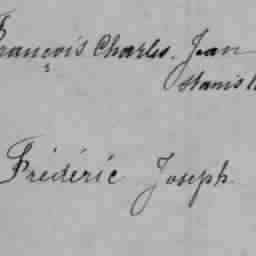 François Charles. Jean
Stanisl
Frédéric Joseph